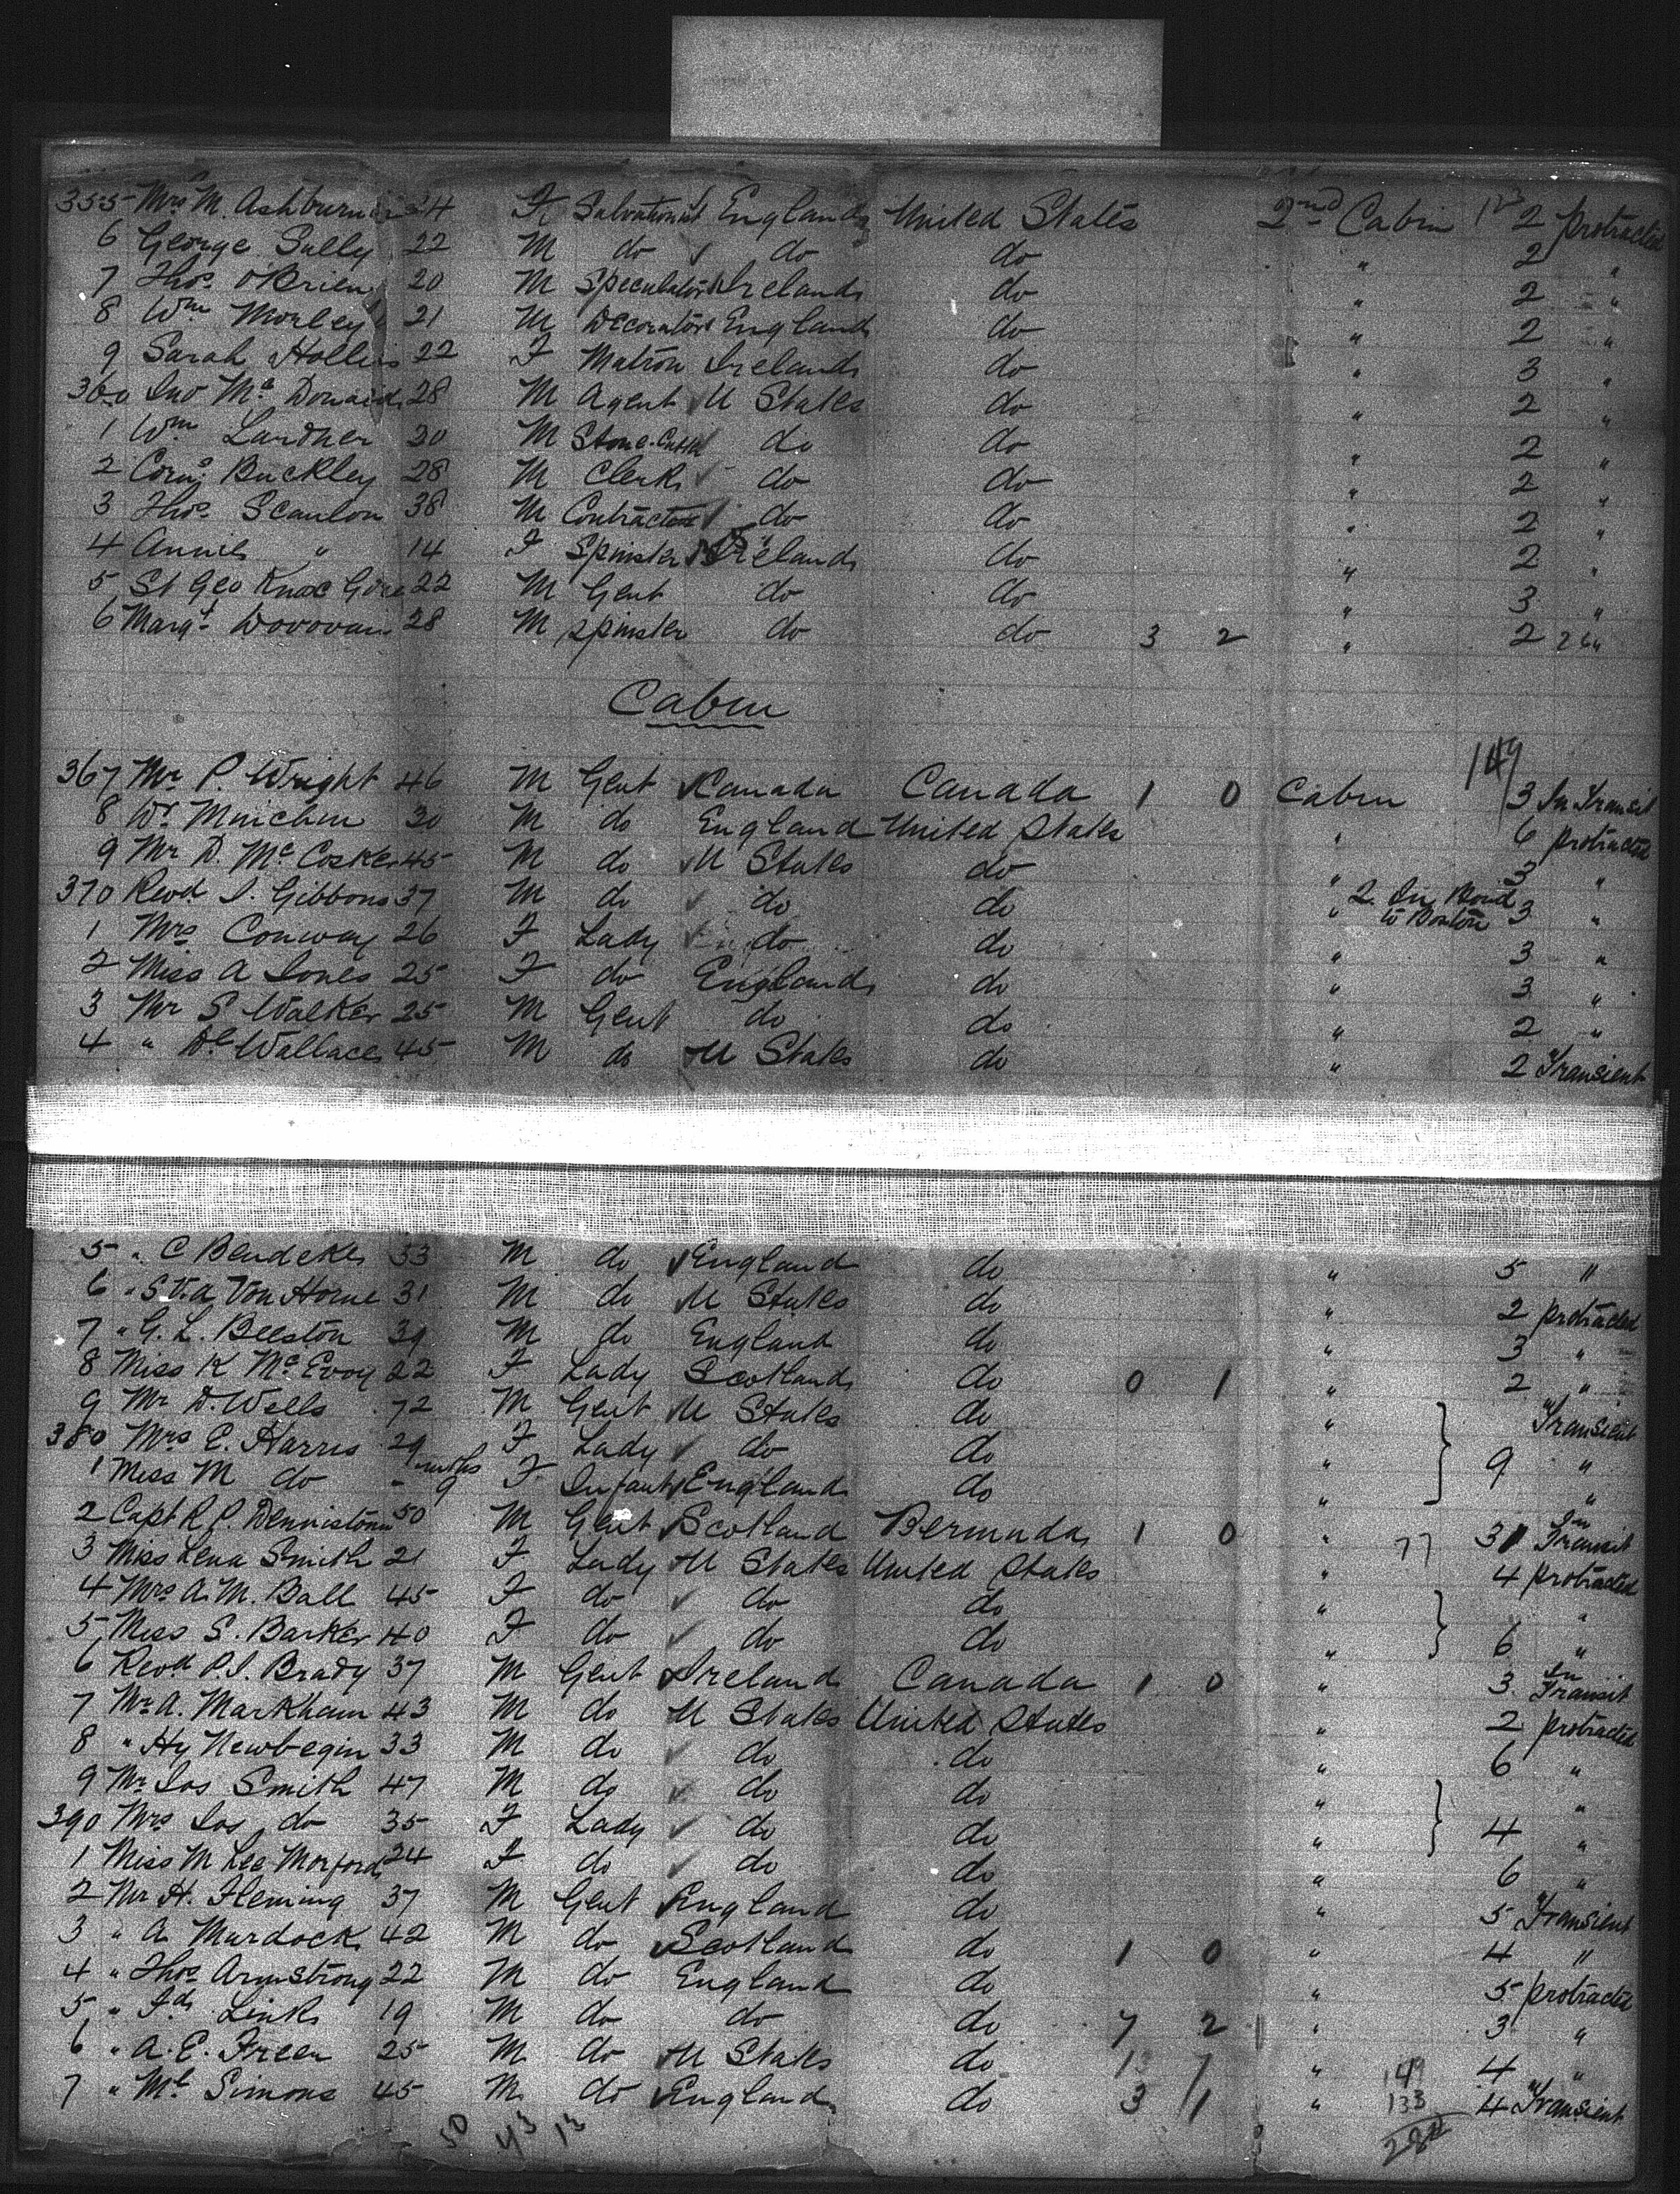 355 Mrs M. Ashburn 24 F Salvationist England United States 2nd Cabin 2 protracted
6 George Sully 22 M do do do " 2 "
7 Thos. O'Brien 20 M Speculator Ireland do " 2 "
8 Wm Morley 21 M Decorator England do " 2 "
9 Sarah Hollins 22 F Matron Ireland do " 3 "
360 Jno Mc Donald 28 M Agent U States do " 2 "
1 Wm Lardner 30 M Stone-Cutter do do " 2 "
2 Corns Buckley 28 M Clerk do do " 2 "
3 Thos. Scanlon 38 M Contractor do do " 2 "
4 Annie " 14 F Spinster Ireland do " 2 "
5 St Geo Knox Gore 22 M Gent do do " 3 "
6 Margt. Donovan 28 M spinster do do 3 2 " 2 26 "
Cabin
149
367 Mr P. Wright 46 M Gent Canada Canada 1 0 Cabin 3 In Transit
8 Minchin 30 M do England United States " 6 protracted
9 Mr D. Mc Cosker 45 M do U States do " 3 "
370 Revd. J. Gibbons 37 M do do do " 2 In Bond to Boston 3 "
1 Mrs Conway 26 F Lady do do " 3 "
2 Miss A Jones 25 F do England do " 3 "
3 Mr S Walker 25 M Gent do do " 2 "
4 " Wallace 45 M do U States do " 2 Transient
5 " C Bendeke 33 M do England do " 5 "
6 " S V. A Von Horne 31 M do U States do " 2 protracted
7 " G. L. Beeston 39 M do England do " 3 "
8 Miss K Mc Evoy 22 F Lady Scotland do 0 1 " 2 "
9 Mr D. Wells 72 M Gent U States do " Transient
380 Mrs E. Harris 29 F Lady do do " 9 "
1 Miss M do - 9 mths F Infant England do " "
2 Capt R. P. Dennistoun 50 M Gent Scotland Bermuda 1 0 " 77 31 In Transit
3 Miss Lena Smith 21 F Lady U States United States " 4 protracted
4 Mrs A. M. Ball 45 F do do do " "
5 Miss S. Barker 40 F do do do " 6 "
6 Revd P. J. Brady 37 M Gent Ireland Canada 1 0 " 3 In Transit
7 Mr A. Markham 43 M do U States United States " 2 protracted
8 " Hy Newbegin 33 M do do do " 6 "
9 Mr Jos Smith 47 M do do do " "
390 Mrs Jos do 35 F Lady do do " 4 "
1 Miss M Lee Morford 24 F do do do " 6 "
2 Mr H. Fleming 37 M Gent England do " 5 Transient
3 " A. Murdock 42 M do Scotland do 1 0 " 4 "
4 " Thos. Armstrong 22 M do England do " 5 protracted
5 " Fdk Link 19 M do do do 7 2 " 3 "
6 " A. E. Freer 25 M do U States do 13 7 " 149 4 "
7 " Ml Simons 45 M do England do 3 1 " 133 4 Transient
50 43 13